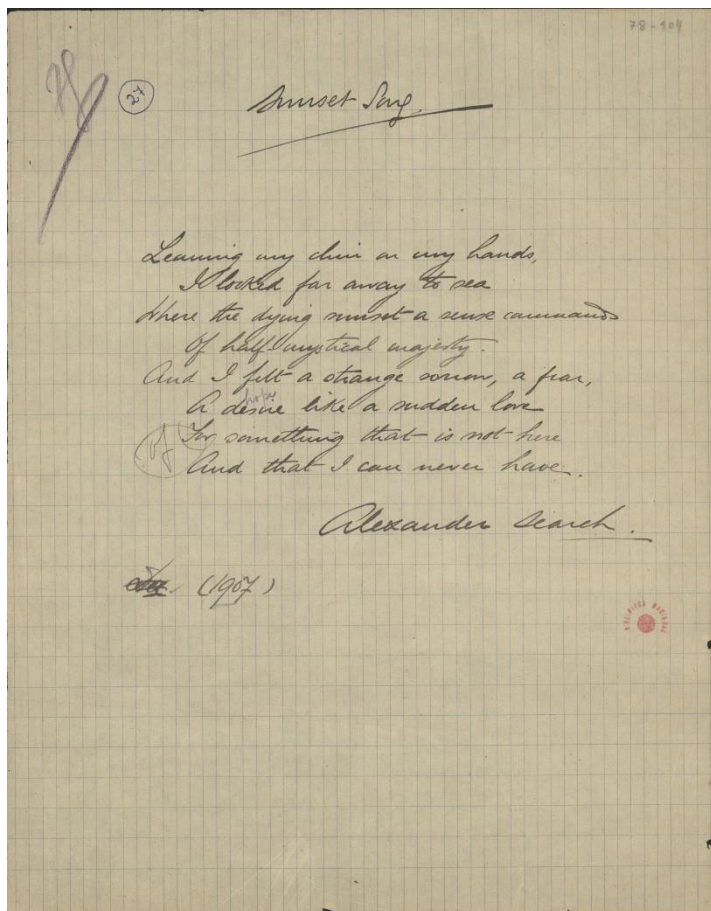 78-104
27
Sunset Song.
Leaning my chin on my hands,
I looked far away to sea
Where the dying sunset a sense commands
Of half-mystical majesty.
And I felt a strange sorrow, a fear,
hope
A desire like a sudden love
of For something that is not here
And that I can never have.
Alexander Search.
(1907)
BIBLIOTECA NACIONAL